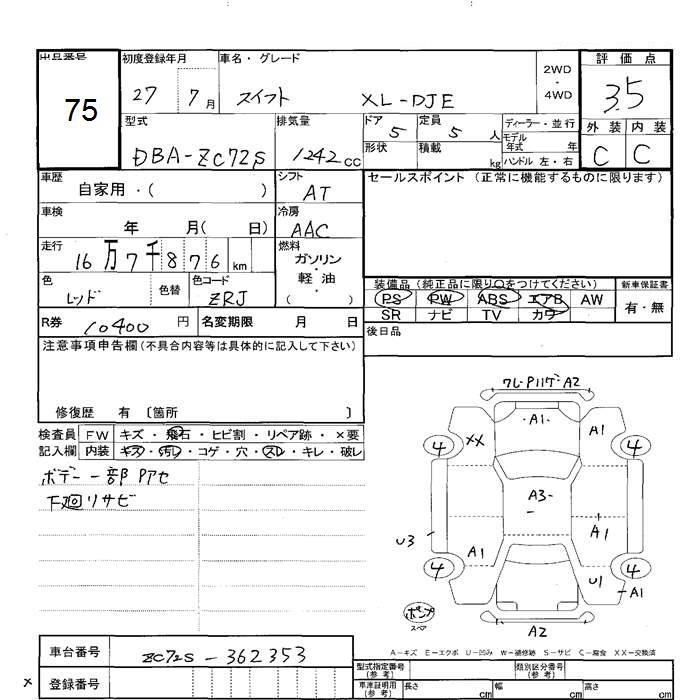 出品番号
75
初度登録年月
27 7月
車名・グレード
スイフト XL-DJE
2WD
・
4WD
評価点
3.5
型式
DBA-ZC72S
排気量
1242 CC
ドア
5
定員
5 人
形状
積載
kg
ディーラー・並行
モデル年式 年
ハンドル 左・右
外装 内装
C C
車歴
自家用・( )
シフト
AT
セールスポイント (正常に機能するものに限ります)
車検
年 月( 日)
冷房
AAC
走行
16万7千876 km
燃料
ガソリン
・
軽油
( )
色
レッド
色替
色コード
ZRJ
装備品 (純正品に限り○をつけてください)
新車保証書
PS PW ABS エアB AW
有・無
SR ナビ TV カワ
R券 10400 円
名変期限 月 日
後日品
注意事項申告欄 (不具合内容等は具体的に記入して下さい)
修復歴 有 〔箇所 〕
検査員 FW キズ・飛石・ヒビ割・リペア跡・×要
記入欄 内装 キズ・汚レ・コゲ・穴・スレ・キレ・破レ
ボデー一部Pアセ
下廻リサビ
A2
A1
XX A1
4 4
A3
U3
A1 A1
4 4
U1
A1
ポンプ
スペア
A2
A-キズ E-エクボ U-凹み W-補修跡 S-サビ C-腐食 XX-交換済
車台番号 ZC72S-362353
× 登録番号
型式指定番号
(参考)
類別区分番号
(参考)
車庫証明用
(参考)
長さ cm 幅 cm 高さ cm